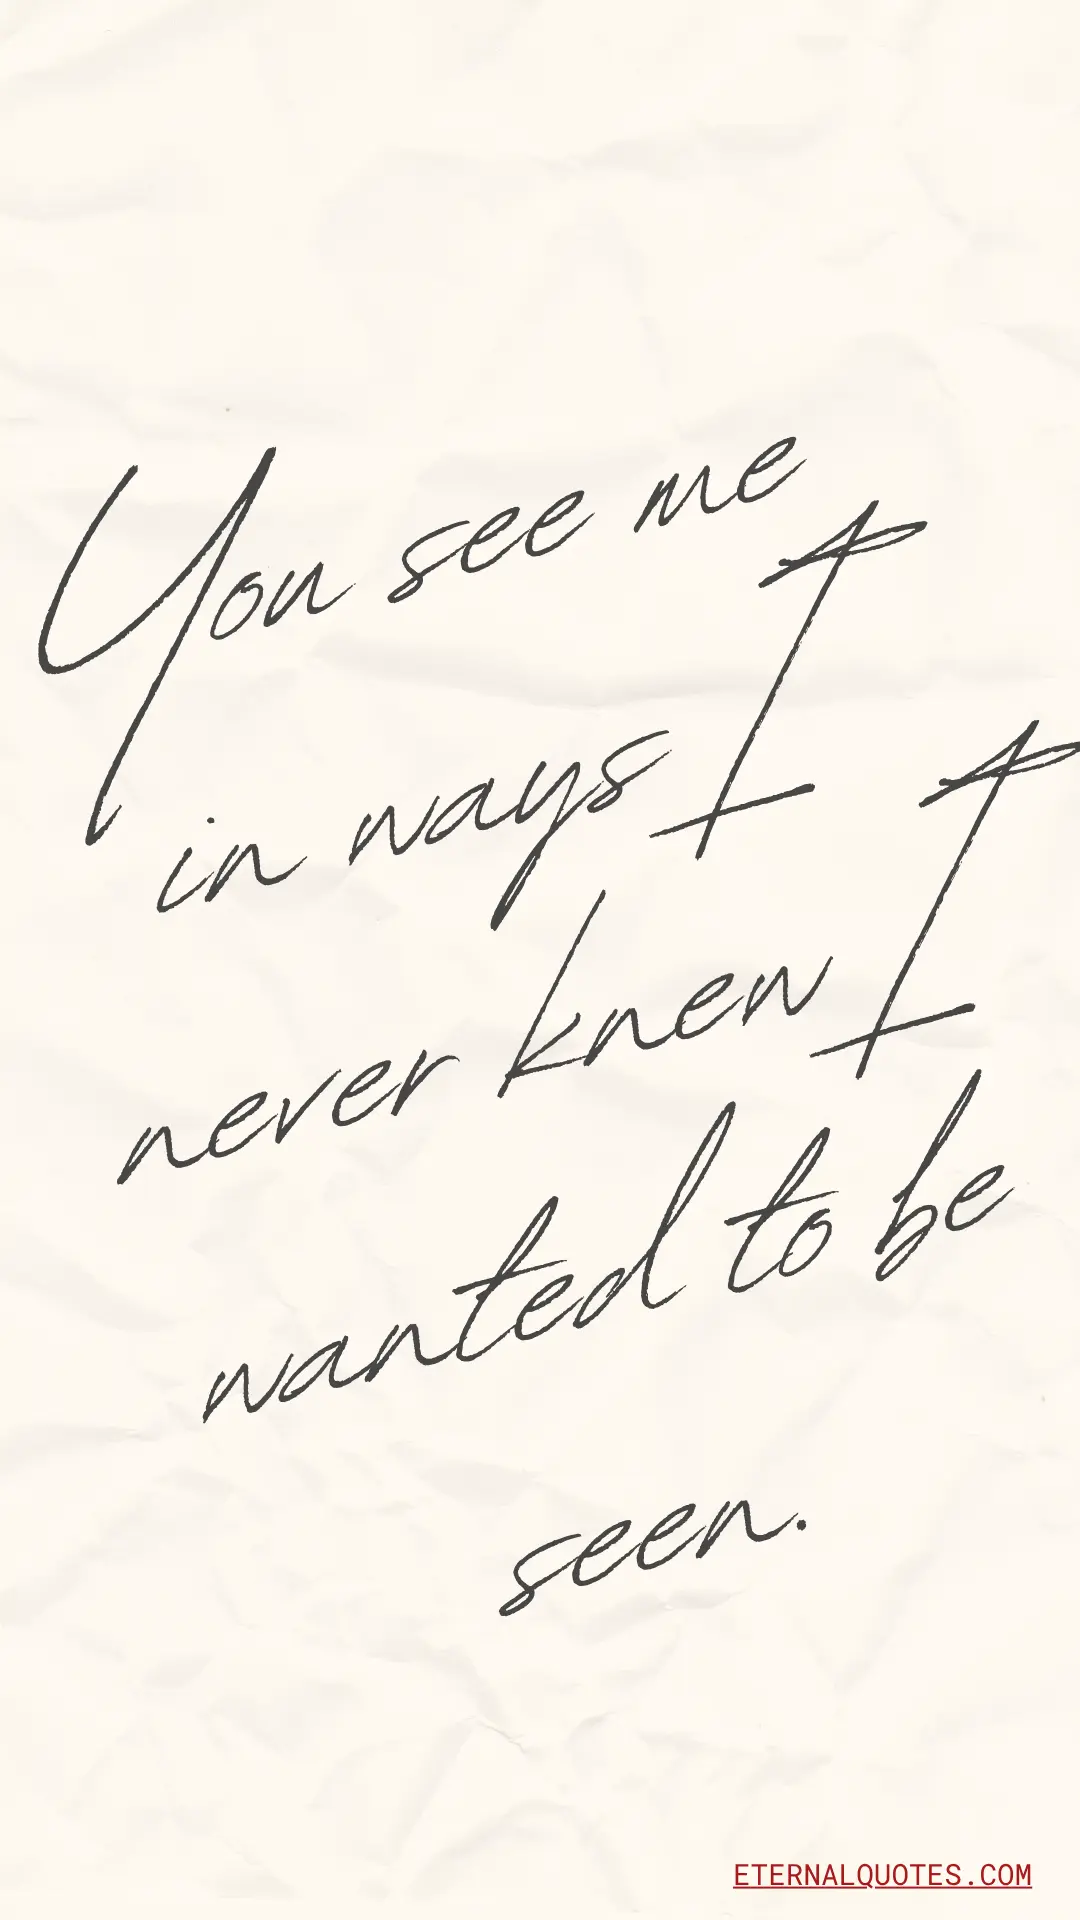 You see me
in ways I
never knew I
wanted to be
seen.
ETERNALQUOTES.COM